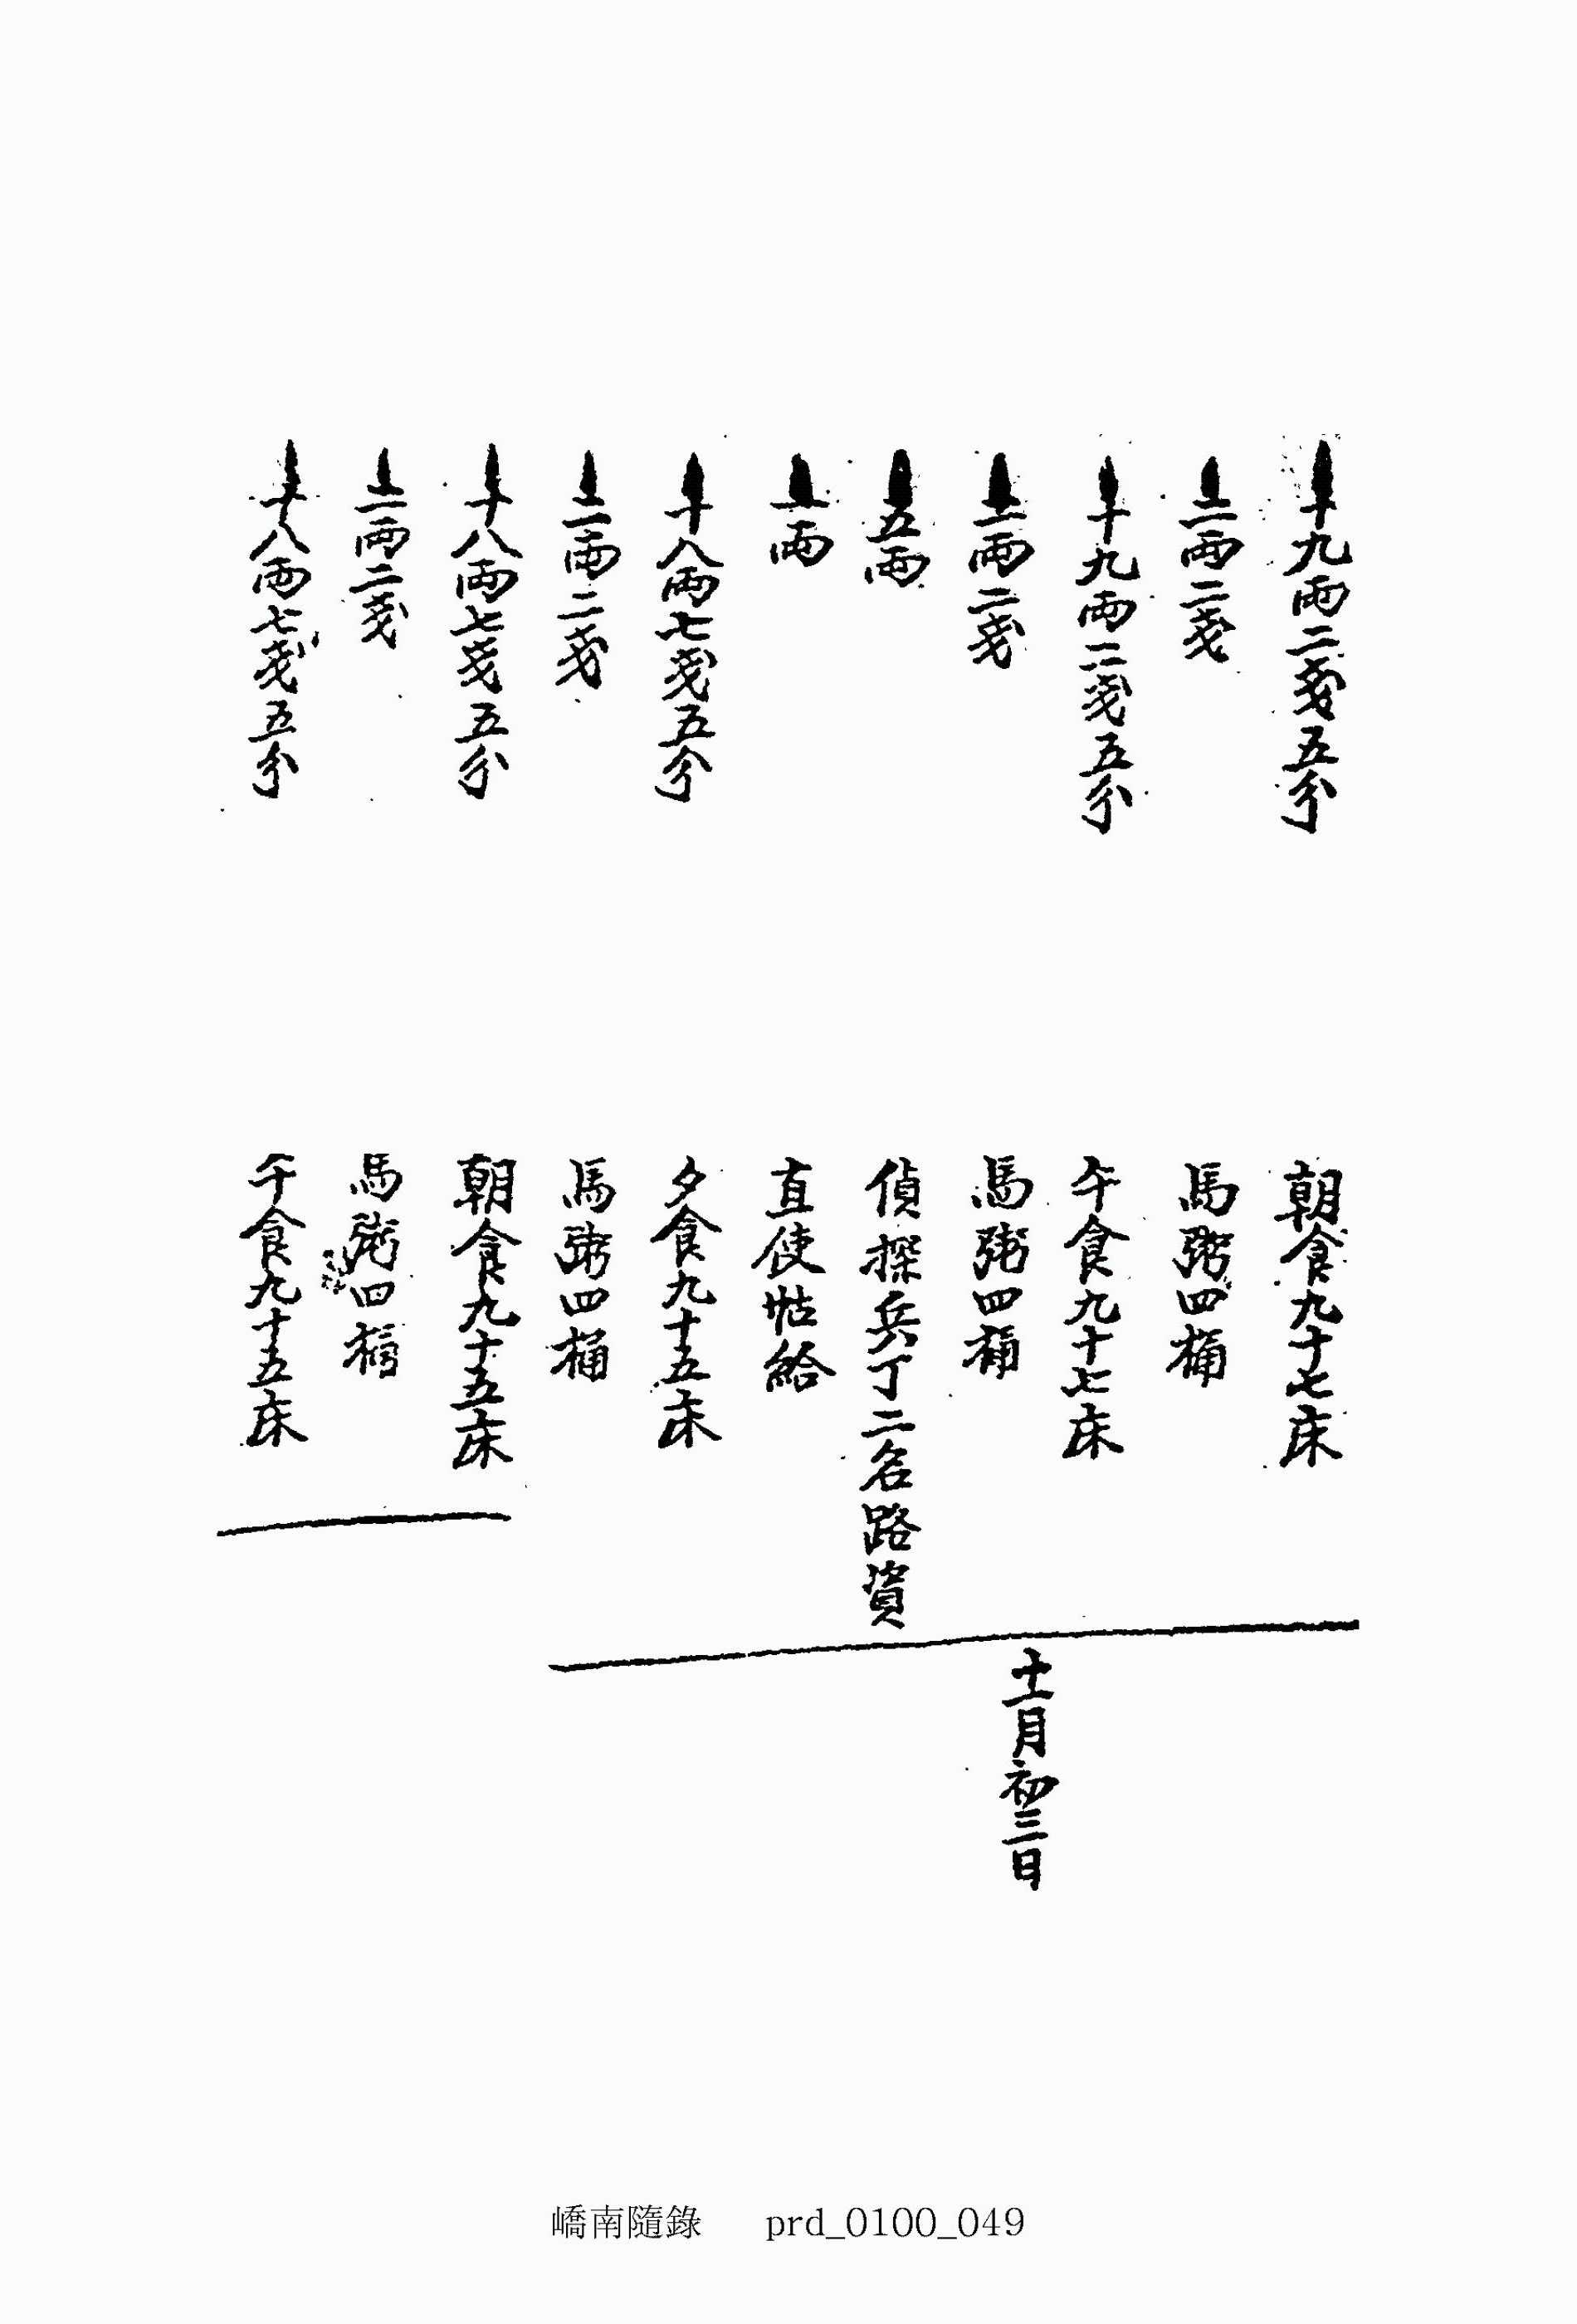 十九兩二戔五分
朝食九十七床
二兩二戔
馬粥四桶
十九兩二戔五分
午食九十七床
二兩二戔
馬粥四桶
五兩
偵探兵丁二名路資
一兩
直使帖給
十八兩七戔五分
夕食九十五床
二兩二戔
馬粥四桶
十一月初三日
十八兩七戔五分
朝食九十五床
二兩二戔
馬粥四桶
十八兩七戔五分
午食九十五床
嶠南隨錄 prd_0100_049